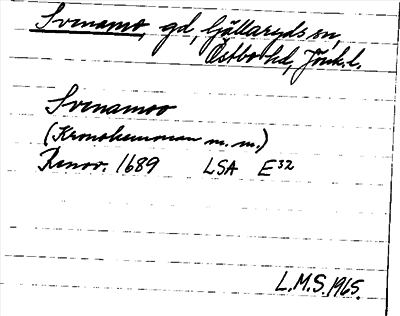 Svenamo, gd, Gällaryds sn,
Östbo hd, Jönk. l.
Svenamoo
(Kronohemman m. m.)
Renov. 1689 LSA E32
L.M.S. 1965.